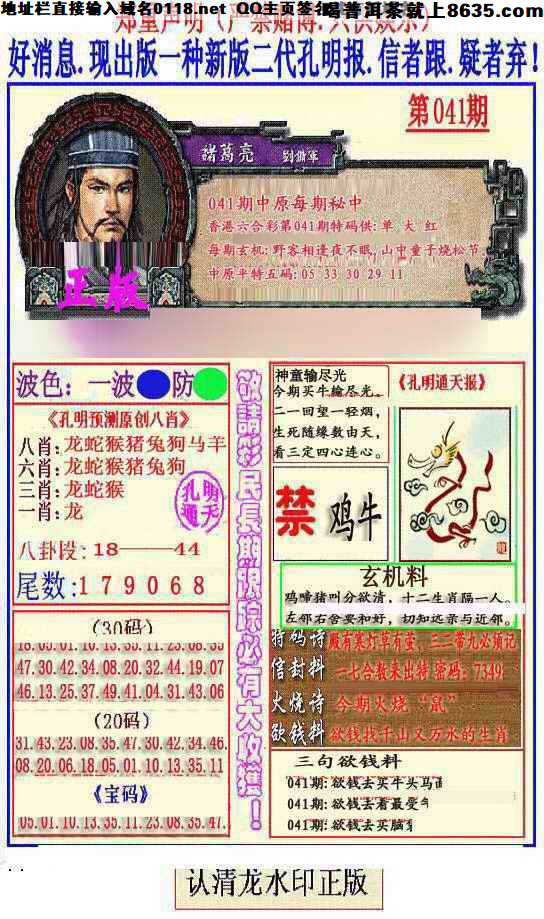 地址栏直接输入域名0118.net QQ主页签名
喝普洱茶就上8635.com
郑重声明（严禁赌博.只供娱乐）
好消息.现出版一种新版二代孔明报.信者跟.疑者弃!
第041期
諸葛亮 劉備軍
041期中原每期秘中
香港六合彩第041期特码供: 单 大 红
每期玄机: 野客相逢夜不眠, 山中童子烧松节
中原平特五码: 05 33 30 29 11
正版
波色: 一波 防
《孔明预测原创八肖》
八肖: 龙蛇猴猪兔狗马羊
六肖: 龙蛇猴猪兔狗
三肖: 龙蛇猴
一肖: 龙
孔明通天
八卦段: 18——44
尾数: 179068
(30码)
18.03.01.10.13.35.11.23.08.33
47.30.42.34.08.20.32.44.19.07
46.13.25.37.49.41.04.31.43.06
(20码)
31.43.23.08.35.47.30.42.34.46.
08.20.06.18.05.01.10.13.35.11
《宝码》
05.01.10.13.35.11.23.08.35.47.
敬請彩民長期跟踪必有大收獲!
神童输尽光
今期买牛输尽光。
二一回望一轻烟,
生死随缘数由天,
看三定四心连心。
《孔明通天报》
禁 鸡牛
玄机料
鸡啼猪叫分欲清, 十二生肖隔一人。
左邻右舍要和好, 切知远亲与近邻。
特码诗 殿有寒灯草有萤, 三二带九必须记
信封料 一七合数来出特 密码: 7349
火烧诗 今期火烧“鼠”
欲钱料 欲钱找千山又万水的生肖
三句欲钱料
041期: 欲钱去买牛头马面
041期: 欲钱去看最受
041期: 欲钱去买脑
认清龙水印正版